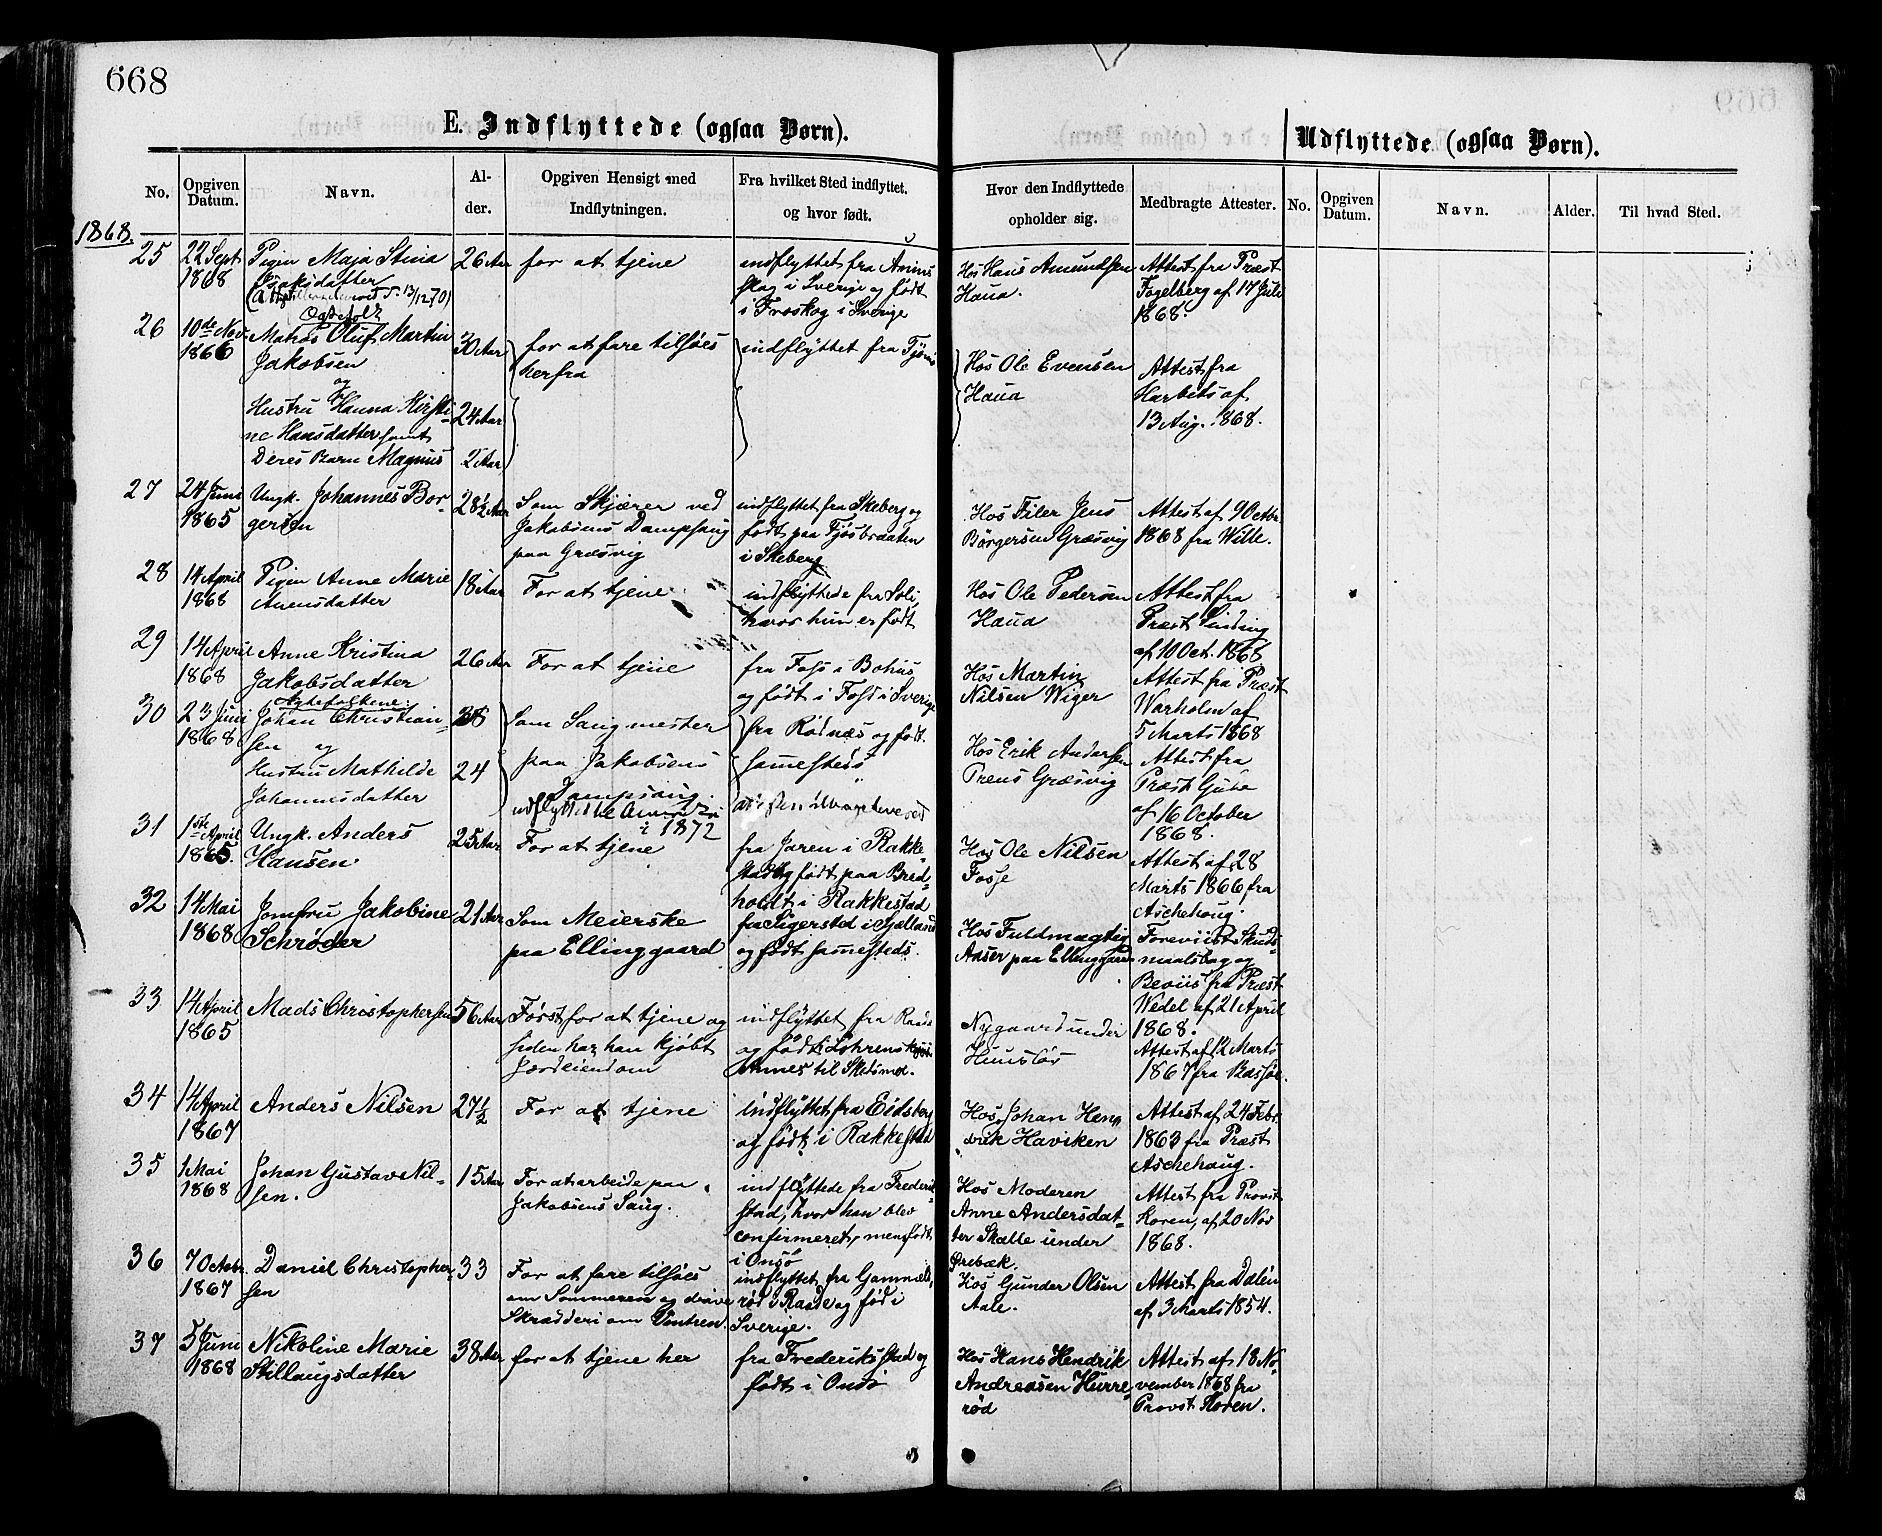 668
E. Indflyttede (ogsaa Børn).
Udflyttede (ogsaa Børn).
No.
Opgiven Datum.
Navn.
Alder.
Opgiven Hensigt med Indflytningen.
Fra hvilket Sted indflyttet. og hvor født.
Hvor den Indflyttede opholder sig.
Medbragte Attester.
No.
Opgiven Datum.
Navn.
Alder.
Til hvad Sted.
1868.
25
22 Sept
1868
Pigen Maja Stina
Isaksdatter
26 Aar
for at tjene
indflyttet fra Anims
skog i Sverige og født
i Froskog i Sverige
Hos Hans Amundsen
Haua.
Attest fra Præst
Fogelberg af 17 Juli
1868.
26
10de Nov.
1866
Ægtefolk
Matros Oluf Martin
Jakobsen
og
Hustru Hanna Kirsti-
ne Hansdatter samt
Deres Barn Magnus
30 Aar
24 Aar
2 Aar
for at fare tilsøes
herfra
indflyttet fra Tjømø
Hos Ole Evensen
Haua
Attest fra
Harbits af
13 Aug. 1868.
27
24 Juni
1865
Ungk. Johannes Bor-
gersen
28½ Aar
Som Skjærer ved
Jakobsens Dampsaug
paa Græsvig
indflyttet fra Skeberg og
født paa Tjøsbraaten
i Skeberg
Hos Filer Jens
Børgersen Græsvig
Attest af 9 Octbr.
1868 fra Wille.
28
14 April
1868
Pigen Anne Marie
Anensdatter
18 Aar
For at tjene
indflyttede fra Soli,
hvor hun er født
Hos Ole Pedersen
Haua
Attest fra
Præst Sinding
af 10 Oct. 1868
29
14 April
1868
Anne Kristina
Jakobsdatter
26 Aar
For at tjene
fra Foss i Bohus
og født i Foss i Sverige
Hos Martin
Nilsen Wiger
Attest fra Præst
Warholm af
5 Marts 1868
30
23 Juni
1868
Ægtefolkene
Johan Christian-
sen og
Hustru Mathilde
Johannesdatter
24
Som Saugmester
paa Jakobsens
Dampsaug.
i 1872
fra Rødnæs og født
sammesteds
Hos Erik Andersen
Prens Græsvig
Attest fra
Præst Gulo
af 16 October
1868.
31
1ste April
1865.
Ungk. Anders
Hansen
25 Aar
For at tjene
fra Jaren i Rakke-
stad og født paa Bred-
holdt i Rakkestad
Hos Ole Nilsen
Fosse
Attest af 28
Marts 1866 fra
Aschehoug.
32
14 Mai
1868
Jomfru Jakobine
Schrøder
21 Aar
Som Meierske
paa Ellinggaard
fra Sigersted i Sjælland
og født sammesteds.
Hos Fuldmægtig
Aaser paa Ellinggaard
Foreviist Skuds-
maalsbog og
Beviis fra Præst
Wedel af 21 April
1868.
33
14 April
1865
Mads Christophersen
56 Aar
Først for at tjene og
siden har han kjøbt
Jordeiendom
indflyttet fra Raade
og født i Lohrenskov
Annex til Skedsmo.
Nygaard under
Huusløs
Attest af 12 Marts
1867 fra Bassøe.
34
14 April
1867
Anders Nilsen
27½
For at tjene
indflyttet fra Eidsberg
og født i Rakkestad
Hos Johan Hen-
drik Haviken
Attest af 24 Febr.
1863 fra Præst
Aschehoug.
35
1 Mai
1868
Johan Gustav Nil-
sen.
15 Aar
For at arbeide paa
Jakobsens Saug.
indflyttede fra Frederik-
stad, hvor han blev
confirmeret, men født
i Onsø
Hos Moderen
Anne Andersdat-
ter Skalle under
Ørebæk.
Attest fra Provst
Koren, af 20 Nov
1868.
36
7 Octbr.
1867
Daniel Christopher-
sen
33
For at fare tilsøes
om Sommeren og drive
Skrædderi om Vintren.
indflyttet fra Gammels-
rød i Raade og fød i
Sverige.
Hos Gunder Olsen
Aale.
Attest fra Dalén
af 3 Marts 1854.
37
5 Juni
1868
Nikoline Marie
Stillaugsdatter
38 Aar
for at tjene her
fra Frederiksstad og
født i Onsø
Hos Hans Hendrik
Andreasen Hurre-
rød
Attest af 18 No-
vember 1868 fra
Provst Koren.